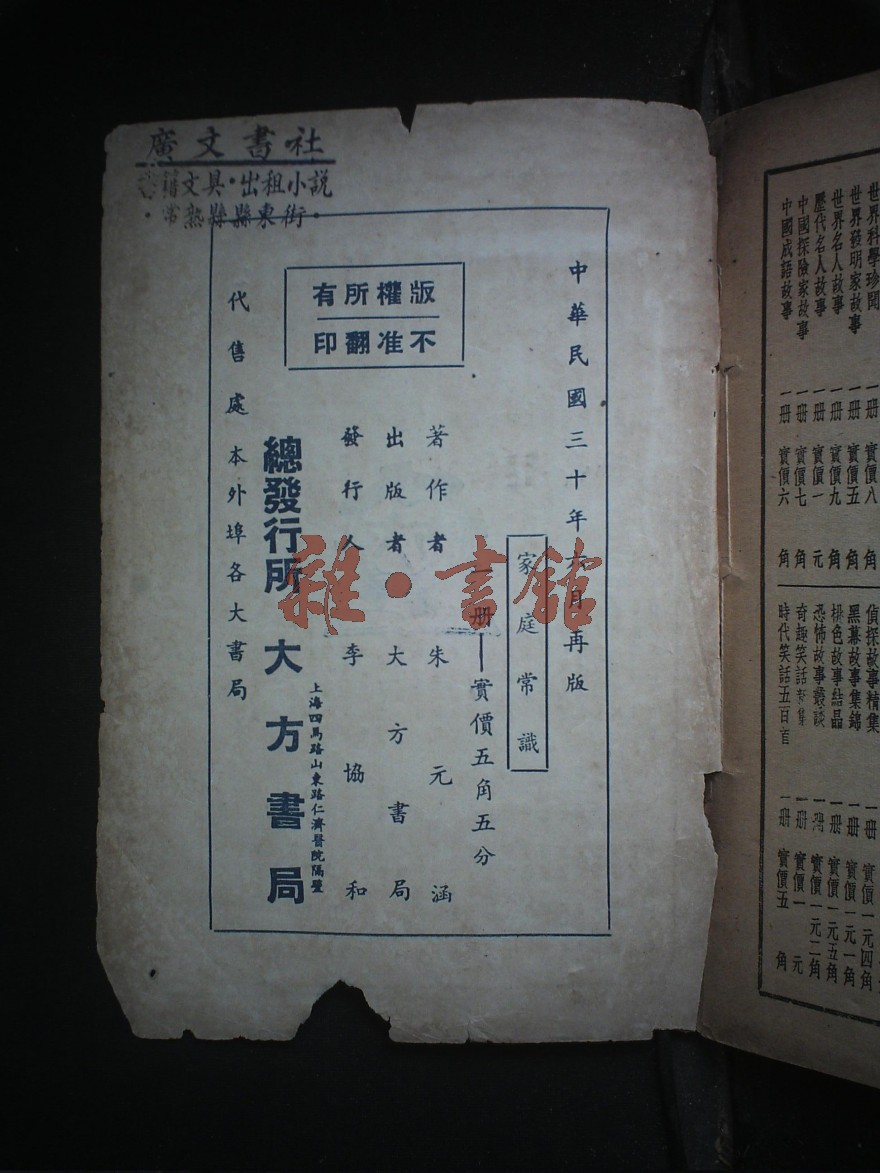 廣文書社
籍文具·出租小説
·常熟縣縣東街·
版權所有
不准翻印
中華民國三十年六月再版
家庭常識
一册——實價五角五分
著作者 朱元涵
出版者 大方書局
發行人 李協和
上海四馬路山東路仁濟醫院隔壁
總發行所 大方書局
代售處本外埠各大書局
雜·書館
世界科學珍聞 一册 實價八角
世界發明家故事 一册 實價五角
世界名人故事 一册 實價九角
歷代名人故事 一册 實價一元
中國探險家故事 一册 實價七角
中國成語故事 一册 實價六角
偵探故事精集 一册 實價一元四角
黑幕故事集錦 一册 實價一元一角
桃色故事結晶 一册 實價一元五角
恐怖故事叢談 一册 實價一元二角
奇趣笑話集 一册 實價一元
時代笑話五百首 一册 實價五角